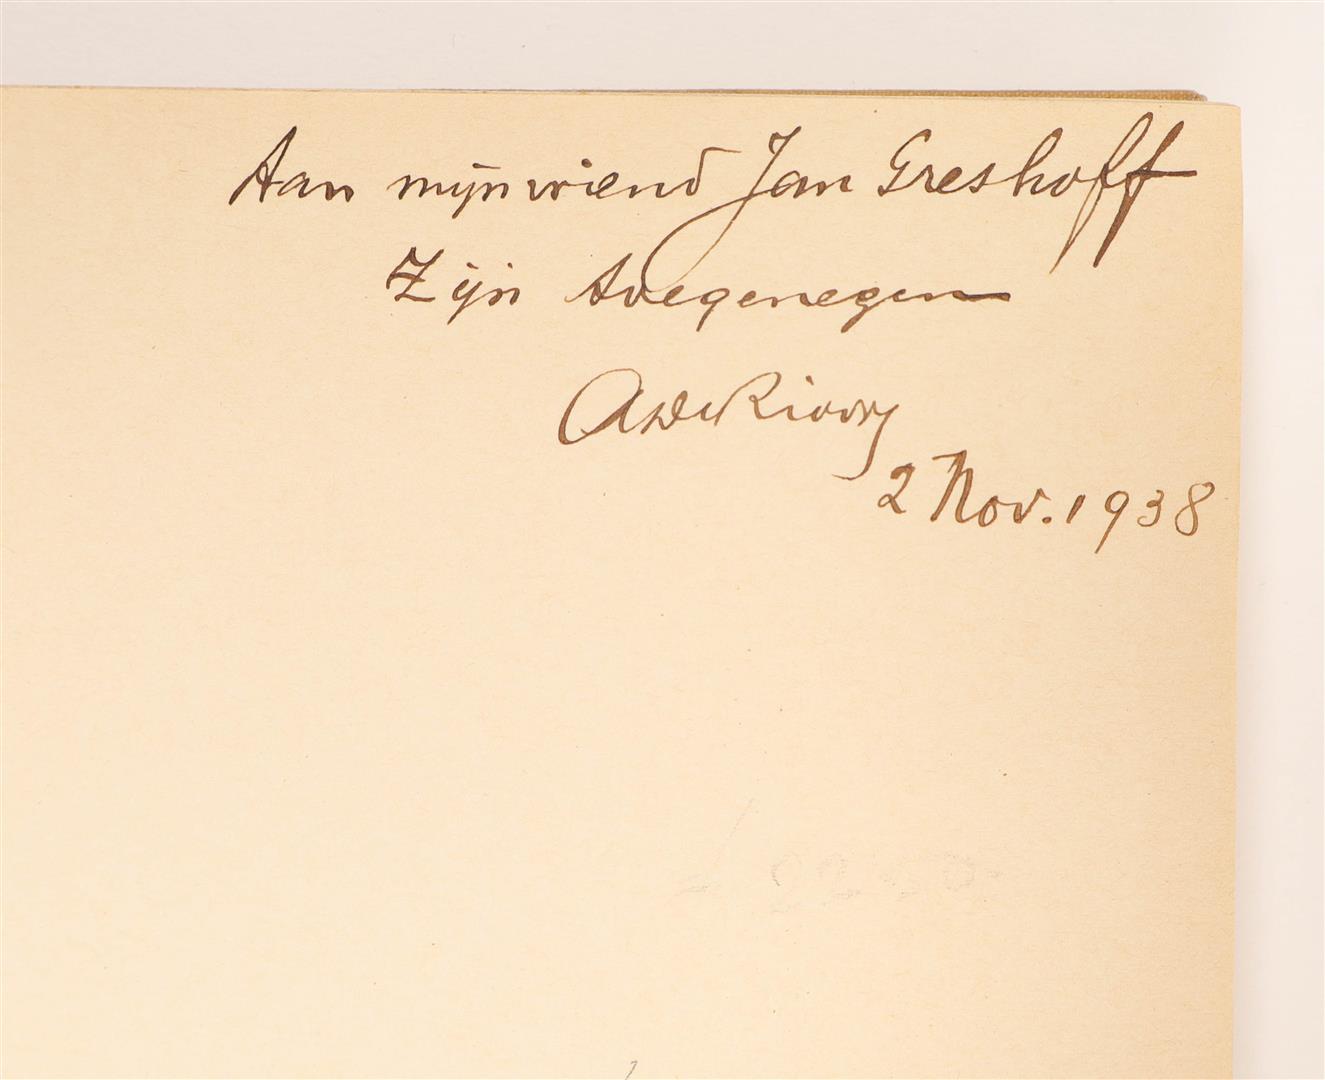 Aan mijn vriend Jan Greshoff
Zijn toegenegen
2 Nov. 1938